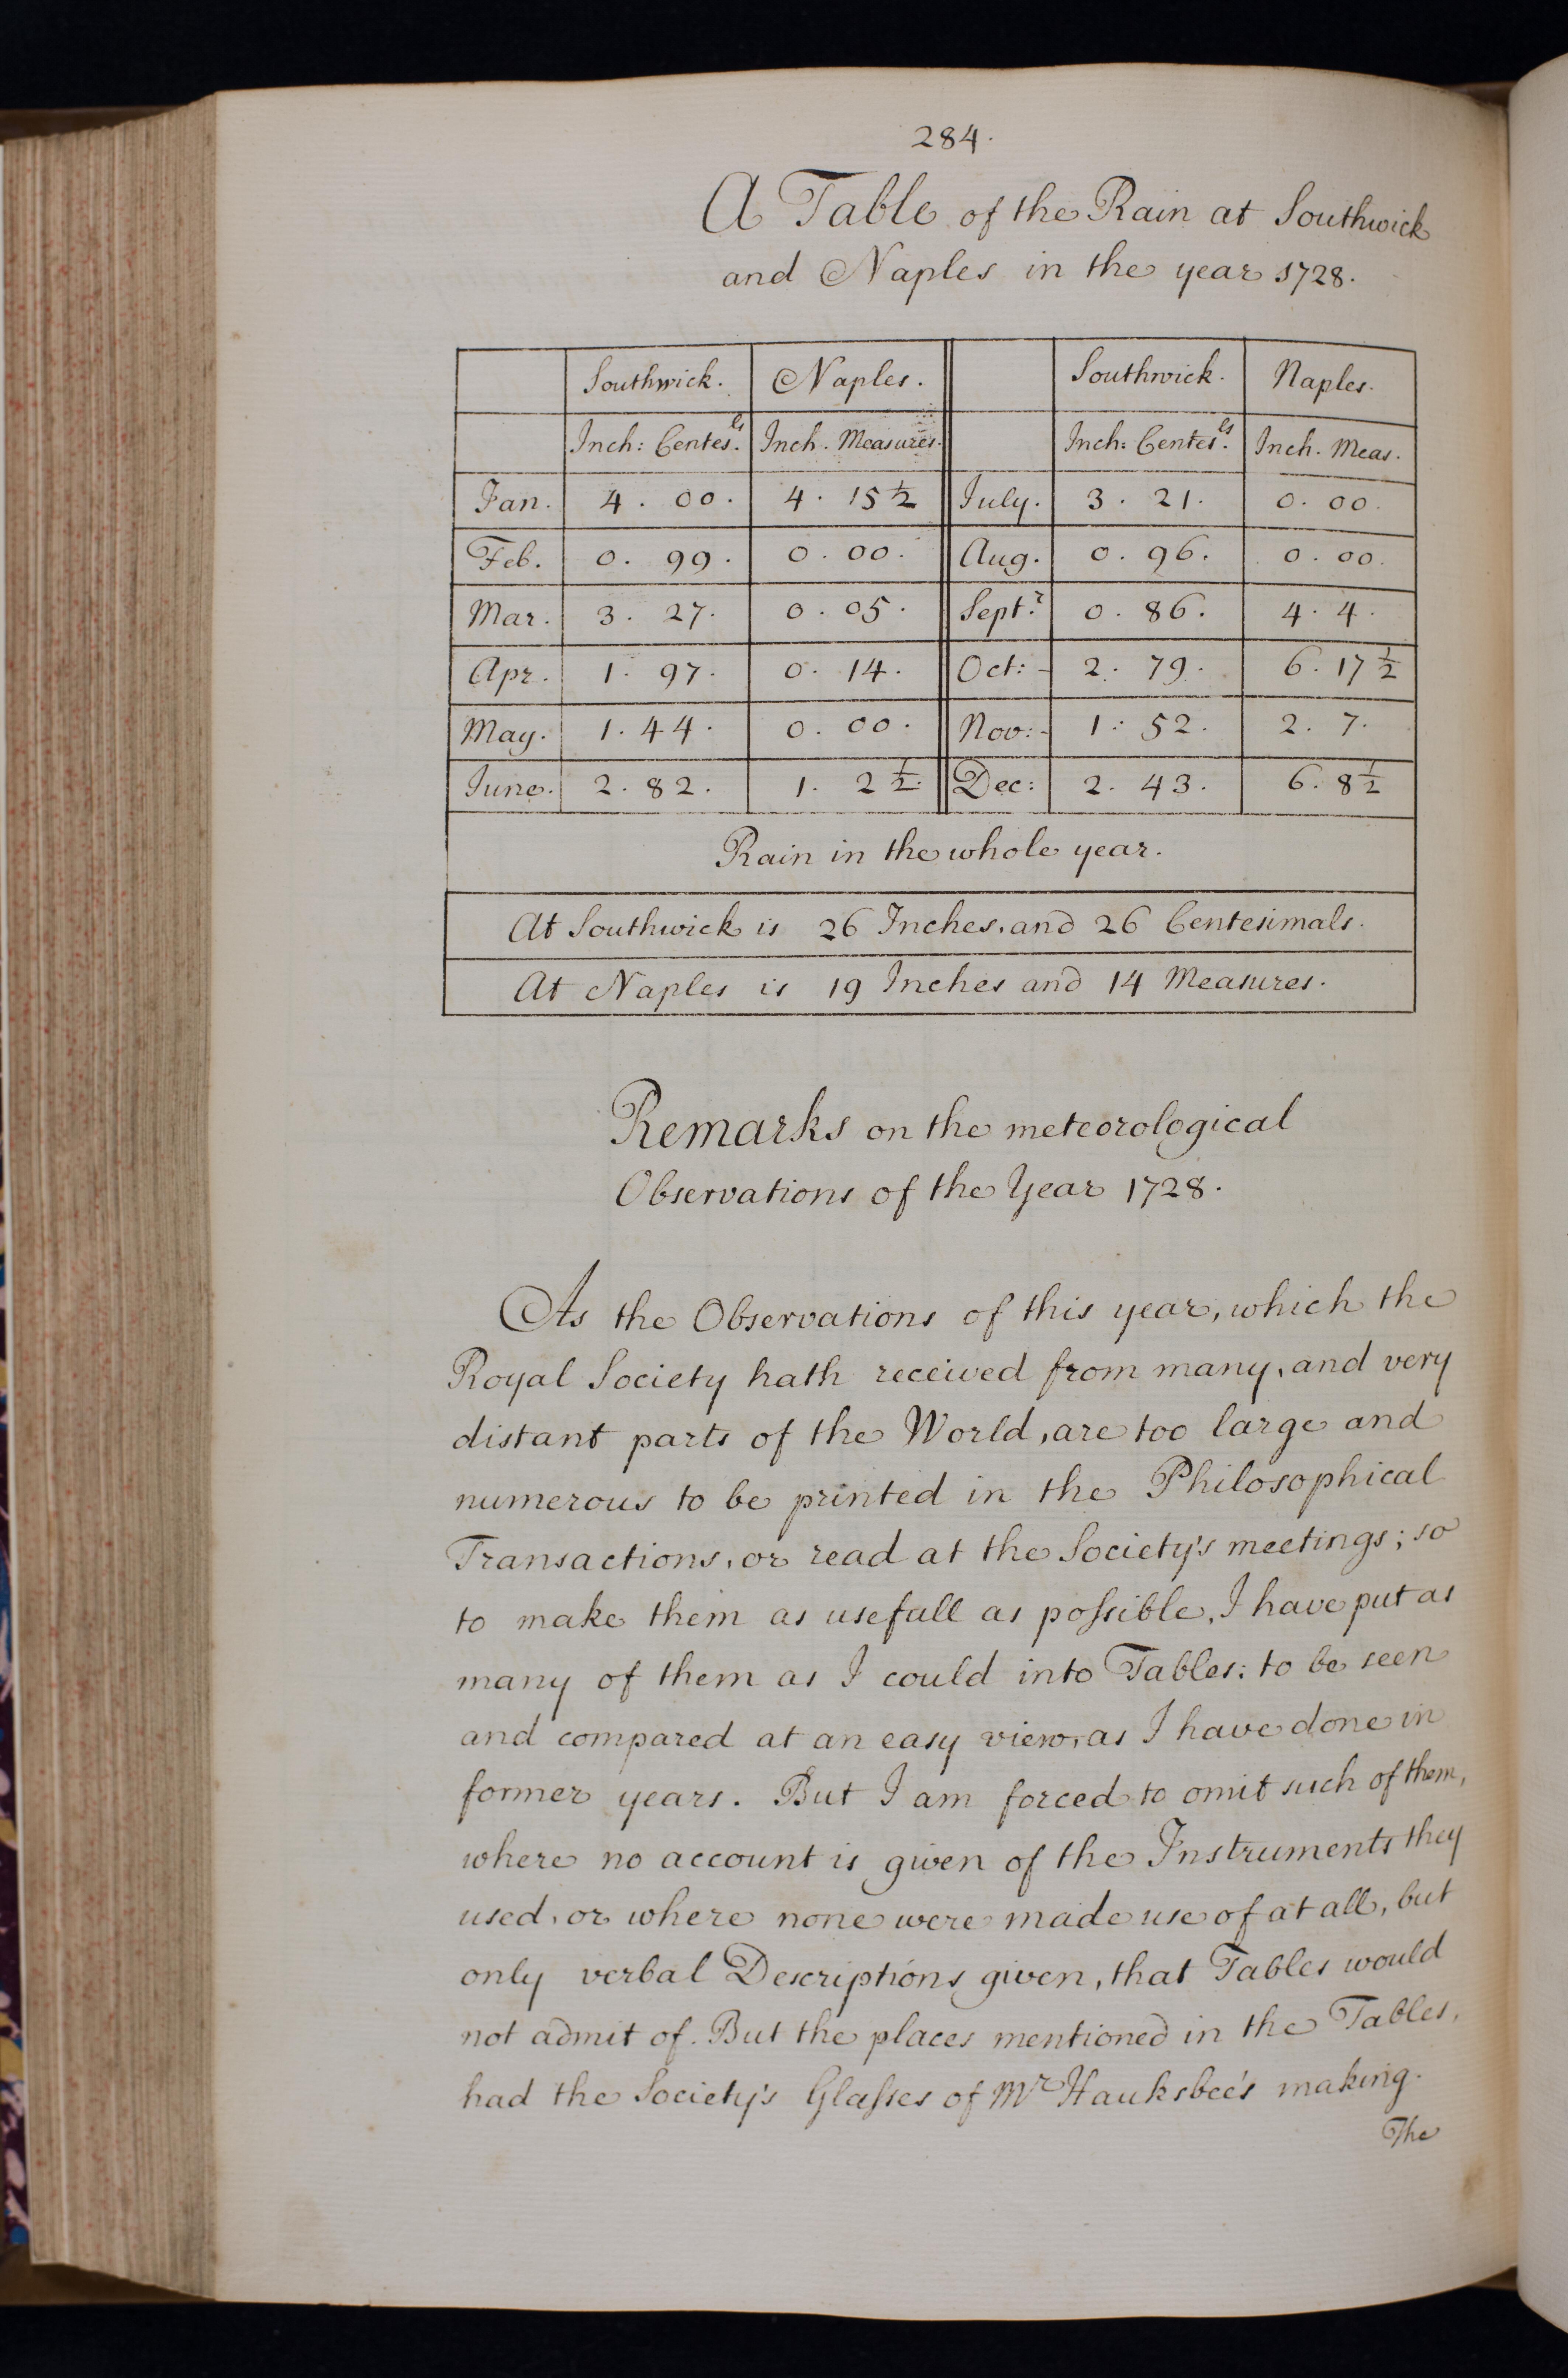 284.
A Table of the Rain at Southwick
and Naples in the year 1728.
Southwick. Naples. Southwick. Naples.
Inch: Centes.ls Inch. Measures. Inch: Centes.ls Inch. Meas.
Jan. 4. 00. 4. 15 1/2 July. 3. 21. 0. 00.
Feb. 0. 99. 0. 00. Aug. 0. 96. 0. 00.
Mar. 3. 27. 0. 05. Sept.r 0. 86. 4. 4.
Apr. 1. 97. 0. 14. Oct: - 2. 79. 6. 17 1/2
May. 1. 44. 0. 00. Nov: - 1: 52. 2. 7.
June. 2. 82. 1. 2 1/2. Dec: 2. 43. 6. 8 1/2
Rain in the whole year.
At Southwick is 26 Inches, and 26 Centesimals.
At Naples is 19 Inches and 14 Measures.
Remarks on the meteorological
Observations of the Year 1728.
As the Observations of this year, which the
Royal Society hath received from many, and very
distant parts of the World, are too large and
numerous to be printed in the Philosophical
Transactions, or read at the Society's meetings; so
to make them as usefull as poſsible, I have put as
many of them as I could into Tables: to be seen
and compared at an easy view, as I have done in
former years. But I am forced to omit such of them,
where no account is given of the Instruments they
used, or where none were made use of at all, but
only verbal Descriptions given, that Tables would
not admit of. But the places mentioned in the Tables,
had the Society's Glaſses of Mr Hauksbee's making.
The